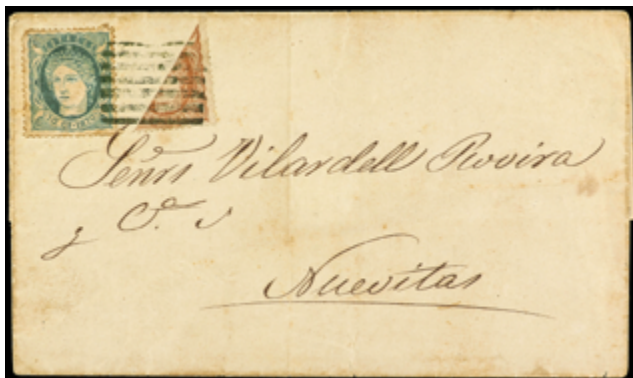 Señrs Vilardell Rovira
y Cª.
Nuevitas